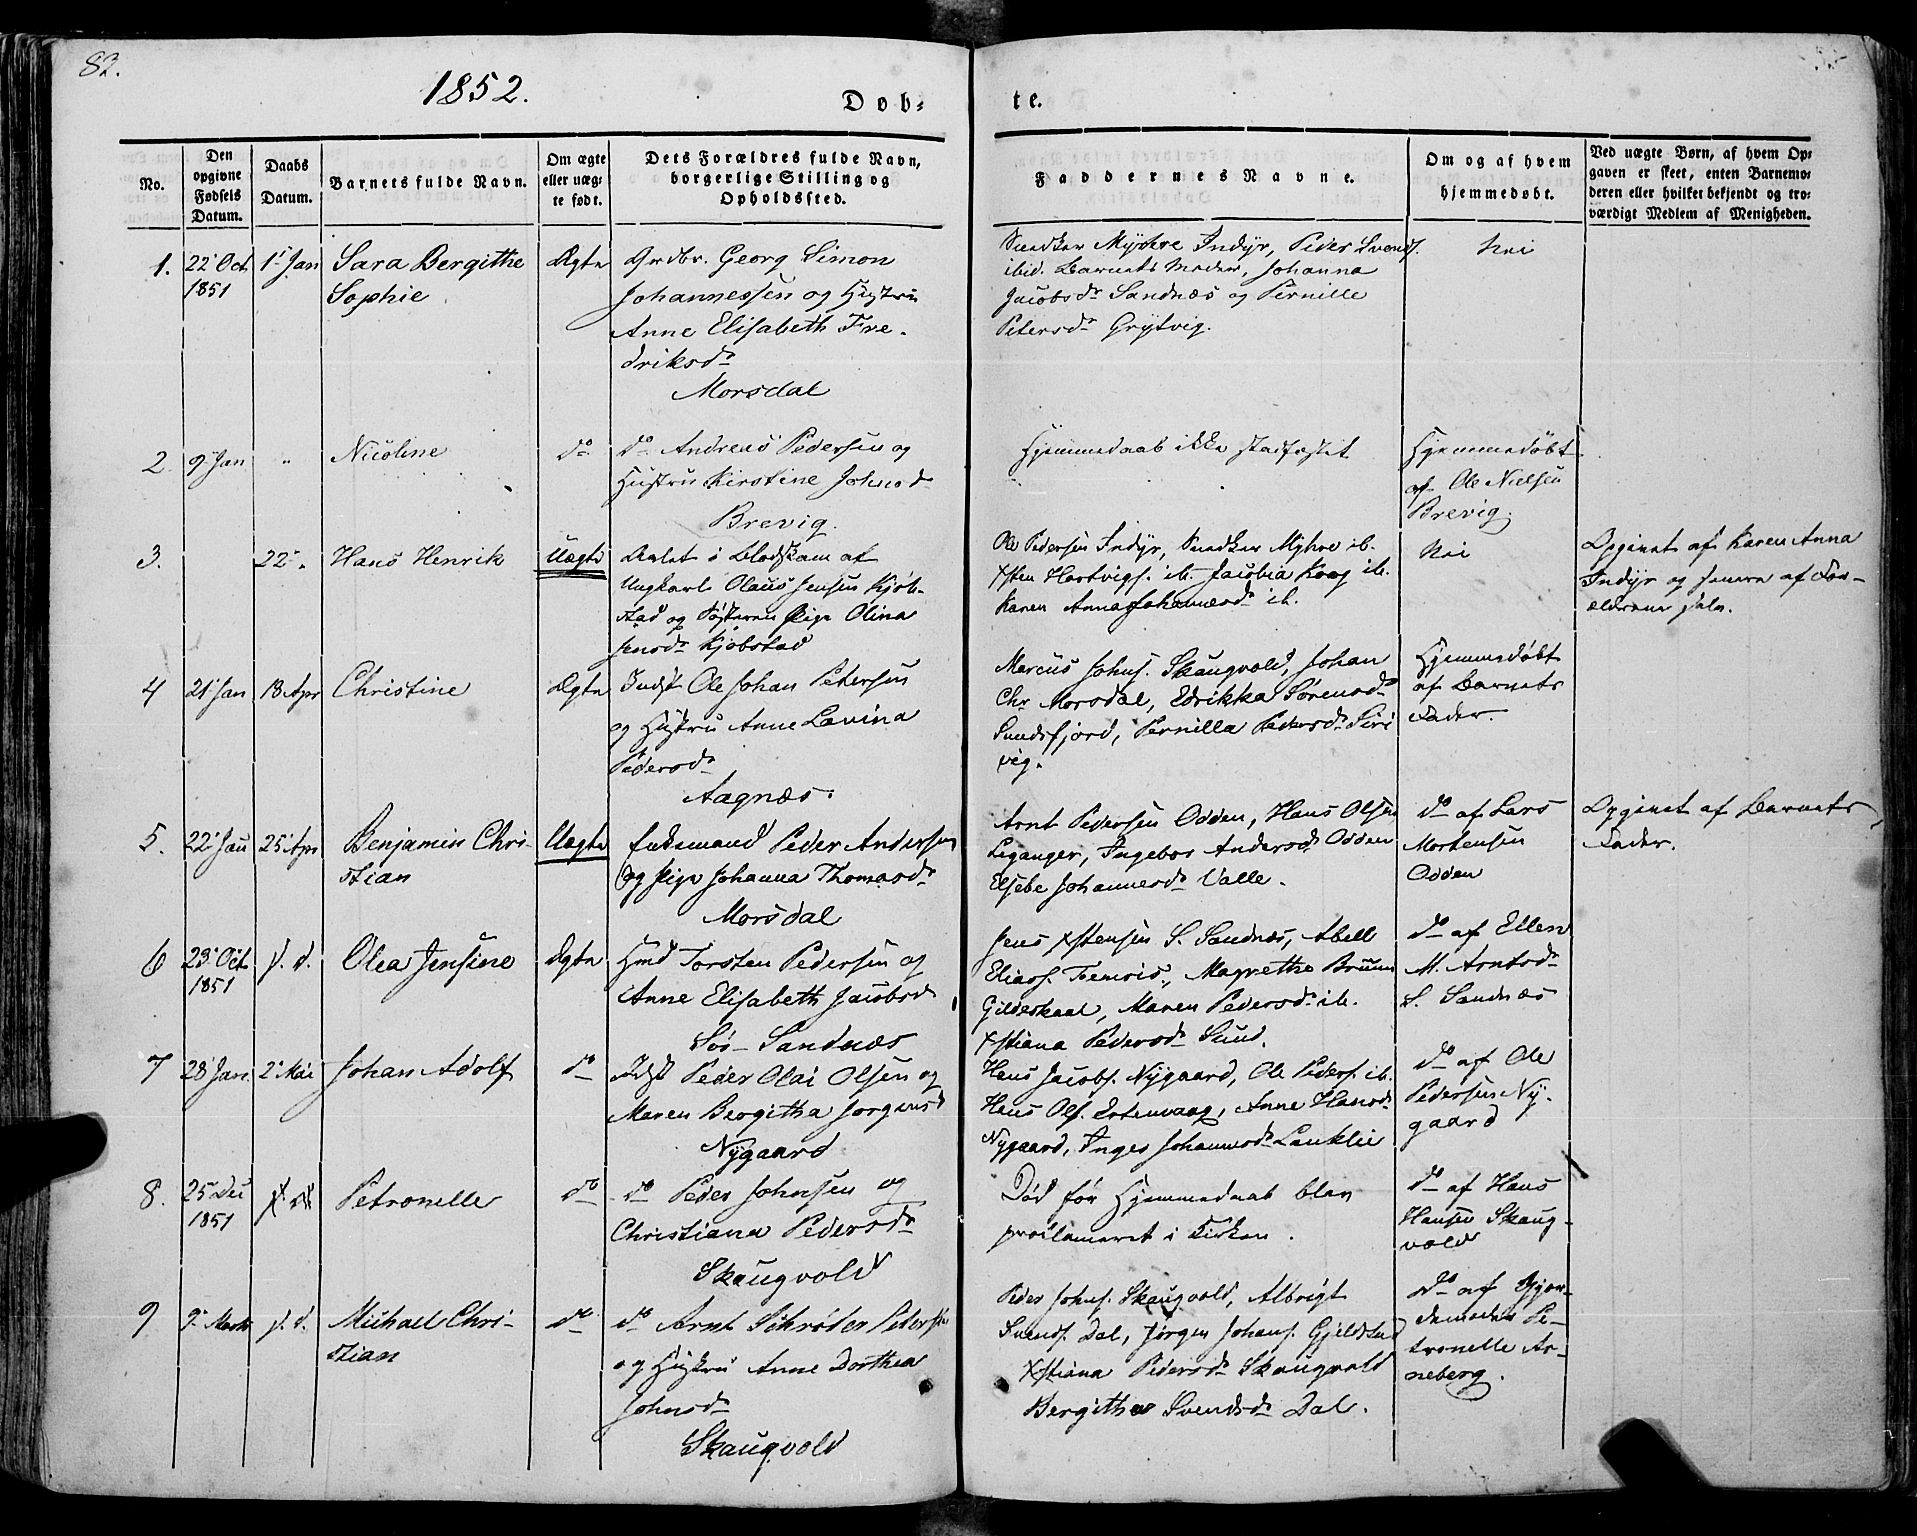 82.
1852.
Døb-
te.
No.
Den
opgivne
Fødsels
Datum.
Daabs
Datum.
Barnets fulde Navn.
Om ægte
eller uæg-
te født.
Dets Forældres fulde Navn,
borgerlige Stilling og
Opholdssted.
Faddernes Navne.
Om og af hvem
hjemmedøbt.
Ved uægte Børn, af hvem Op-
gaven er skeet, enten Barnemo-
deren eller hvilket bekjendt og tro-
værdigt Medlem af Menigheden.
1.
22 Oct
1851
1 Jan
Sara Bergithe
Sophie
Ægte
Grdbr. Georg Simon
Johannessen og Hustru
Anne Elisabeth Fre-
driksdr
Morsdal
Myhre Indyr, Peder Svends.
ibid. Barnets Moder, Johanna
Jacobsdr Sandnæs og Pernille
Petersdr Grytvig.
Nei
2.
9 Jan
"
Nicoline
do
do Andreas Pedersen og
Hustru Kirstine Johnsdr
Brevig.
Hjemmedaab ikke stadfæstet
Hjemmedøbt
af Ole Nielsen
Brevig.
3.
22 "
Hans Henrik
Uægte
Avlet i Blodskam af
Ungkarl Olaus Jensen Kjøb-
stad og Søsteren Pige Olina
Jensdr Kjøbstad
Ole Pedersen Indyr, Myhre ib.
Xsten Hartvigs. ib. Jacobia Koog ib.
Karen Anna Johannesdr ib.
Nei
Opgivet af Karen Anna
Indyr og senere af For-
ældrene selv.
4
21 Jan
18 Apr
Christine
Ægte
Indst Ole Johan Petersen
og Hustru Anne Lavina
Pedersdr
Aagnæs.
Marcus Johns. Skaugvold, Johan
Chr Morsdal, Edrikka Sørensdr
Sundsfjord, Pernilla Pedersdr Siri
vig.
Hjemmedøbt
af Barnets
Fader.
5.
22 Jan
25 Apr
Benjamin Chri-
stian
Uægte
Enkemand Peder Andersen
og Pige Johanna Thomasdr
Morsdal
Arnt Pedersen Odden, Hans Olsen
Leganger, Ingebor Andersdr Odden
Elsebe Johannesdr Valle.
do af Lars
Mortensen
Odden
Opgivet af Barnets
Fader.
6
23 Oct
1851
s. d.
Olea Jensine
Ægte
Hmd Torsten Pedersen og
Anne Elisabeth Jacobsdr
Sør-Sandnæs
Jens Xstensen S. Sandnæs, Abell
Elias. Magrethe Bruun
Gildeskaal, Maren Pedersdr ib.
Xstiana Pedersdr Sund.
do af Ellen
M. Arntsdr
S. Sandnæs
7
28 Jan
2 Mai
Johan Adolf
do
Indst Peder Olai Olsen og
Maren Bergitha Jørgensd
Nygaard
Hans Jacobs. Nygaard, Ole Peders. ib.
Hans Ols. Ertenvaag, Anne Hansdr
Nygaard, Inger Johannesdr Lanklie
do af Ole
Pedersen Ny-
gaard
8.
25 Dec
1851
Petronelle
do
do Peder Johnsen og
Christiana Pedersdr
Skaugvold
Død før Hjemmedaab blev
proclameret i Kirken.
do af Hans
Hansen Skaug-
vold
9
9 Marts
s. d.
Michael Chri-
stian
do
do Arnt Schrøder Petersen
og Hustru Anne Dorthea
Johnsdr
Skaugvold
Peder Johns. Skaugvold, Albrigt
Svends. Dal, Jørgen Johans. Gjeldstad
Xstiana Pedersdr Skaugvold
Bergitha Svendsdr Dal.
do af Gjor-
demoder Pe-
tronelle Ar-
neberg.